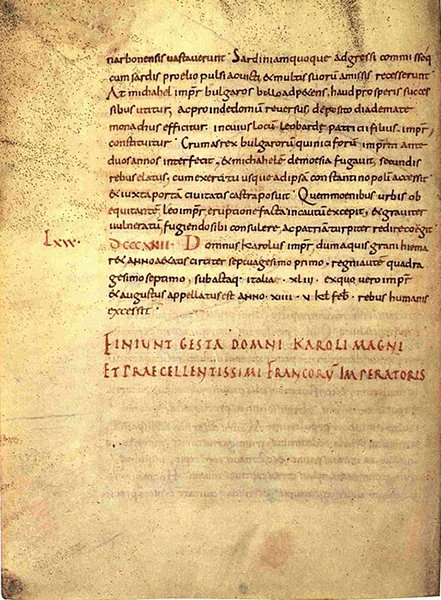 narbonensis vastaverunt. Sardiniam quoque adgressi commissoq;
cum sardis proelio pulsi ac victi, & multis suorū amissis recesserunt
At michahel impr̄ bulgaros bello adpetens, haud prosperis succes
sibus utitur, ac proinde domū reversus, deposito diademate
monachus efficitur. in cuius locū leo bardę patricii filius, impr̄,
constituitur. Crumas rex bulgarorū qui niciforū imprm̄ ante
duos annos interfecit, & michahelē de moesia fugavit, secundis
rebus elatus, cum exercitu usque ad ipsā constantinopolī accessit
& iuxta portā civitatis castra posuit. Quem moenibus urbis ob
equitantē leo impr̄ eruptione facta incautū excepit, & graviter
vulneratū fugiendo sibi consulere, ac patriā turpiter redire coegit
Lxv. DCCCXIIII. Domnus karolus impr̄ dum aquisgrani hiema
ret anno aetatis circiter septuagesimo primo, regni autē quadra
gesimo septimo, subactaeq; italiae .xliii. ex quo vero impr̄
& augustus appellatus est anno .xiiii. v kl feb̄. rebus humanis
excessit
FINIUNT GESTA DOMNI KAROLI MAGNI
ET PRAECELLENTISSIMI FRANCORŪ IMPERATORIS